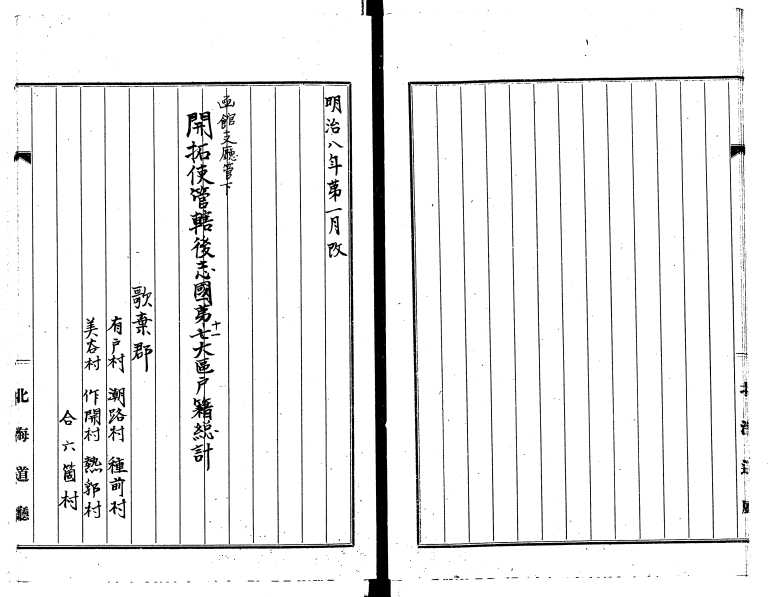 明治八年第一月改
函館支廳管下
開拓使管轄後志國第七大區戸籍總計
十一
歌棄郡
有戸村 潮路村 種前村
美谷村 作開村 熱郛村
合六箇村
北海道廳